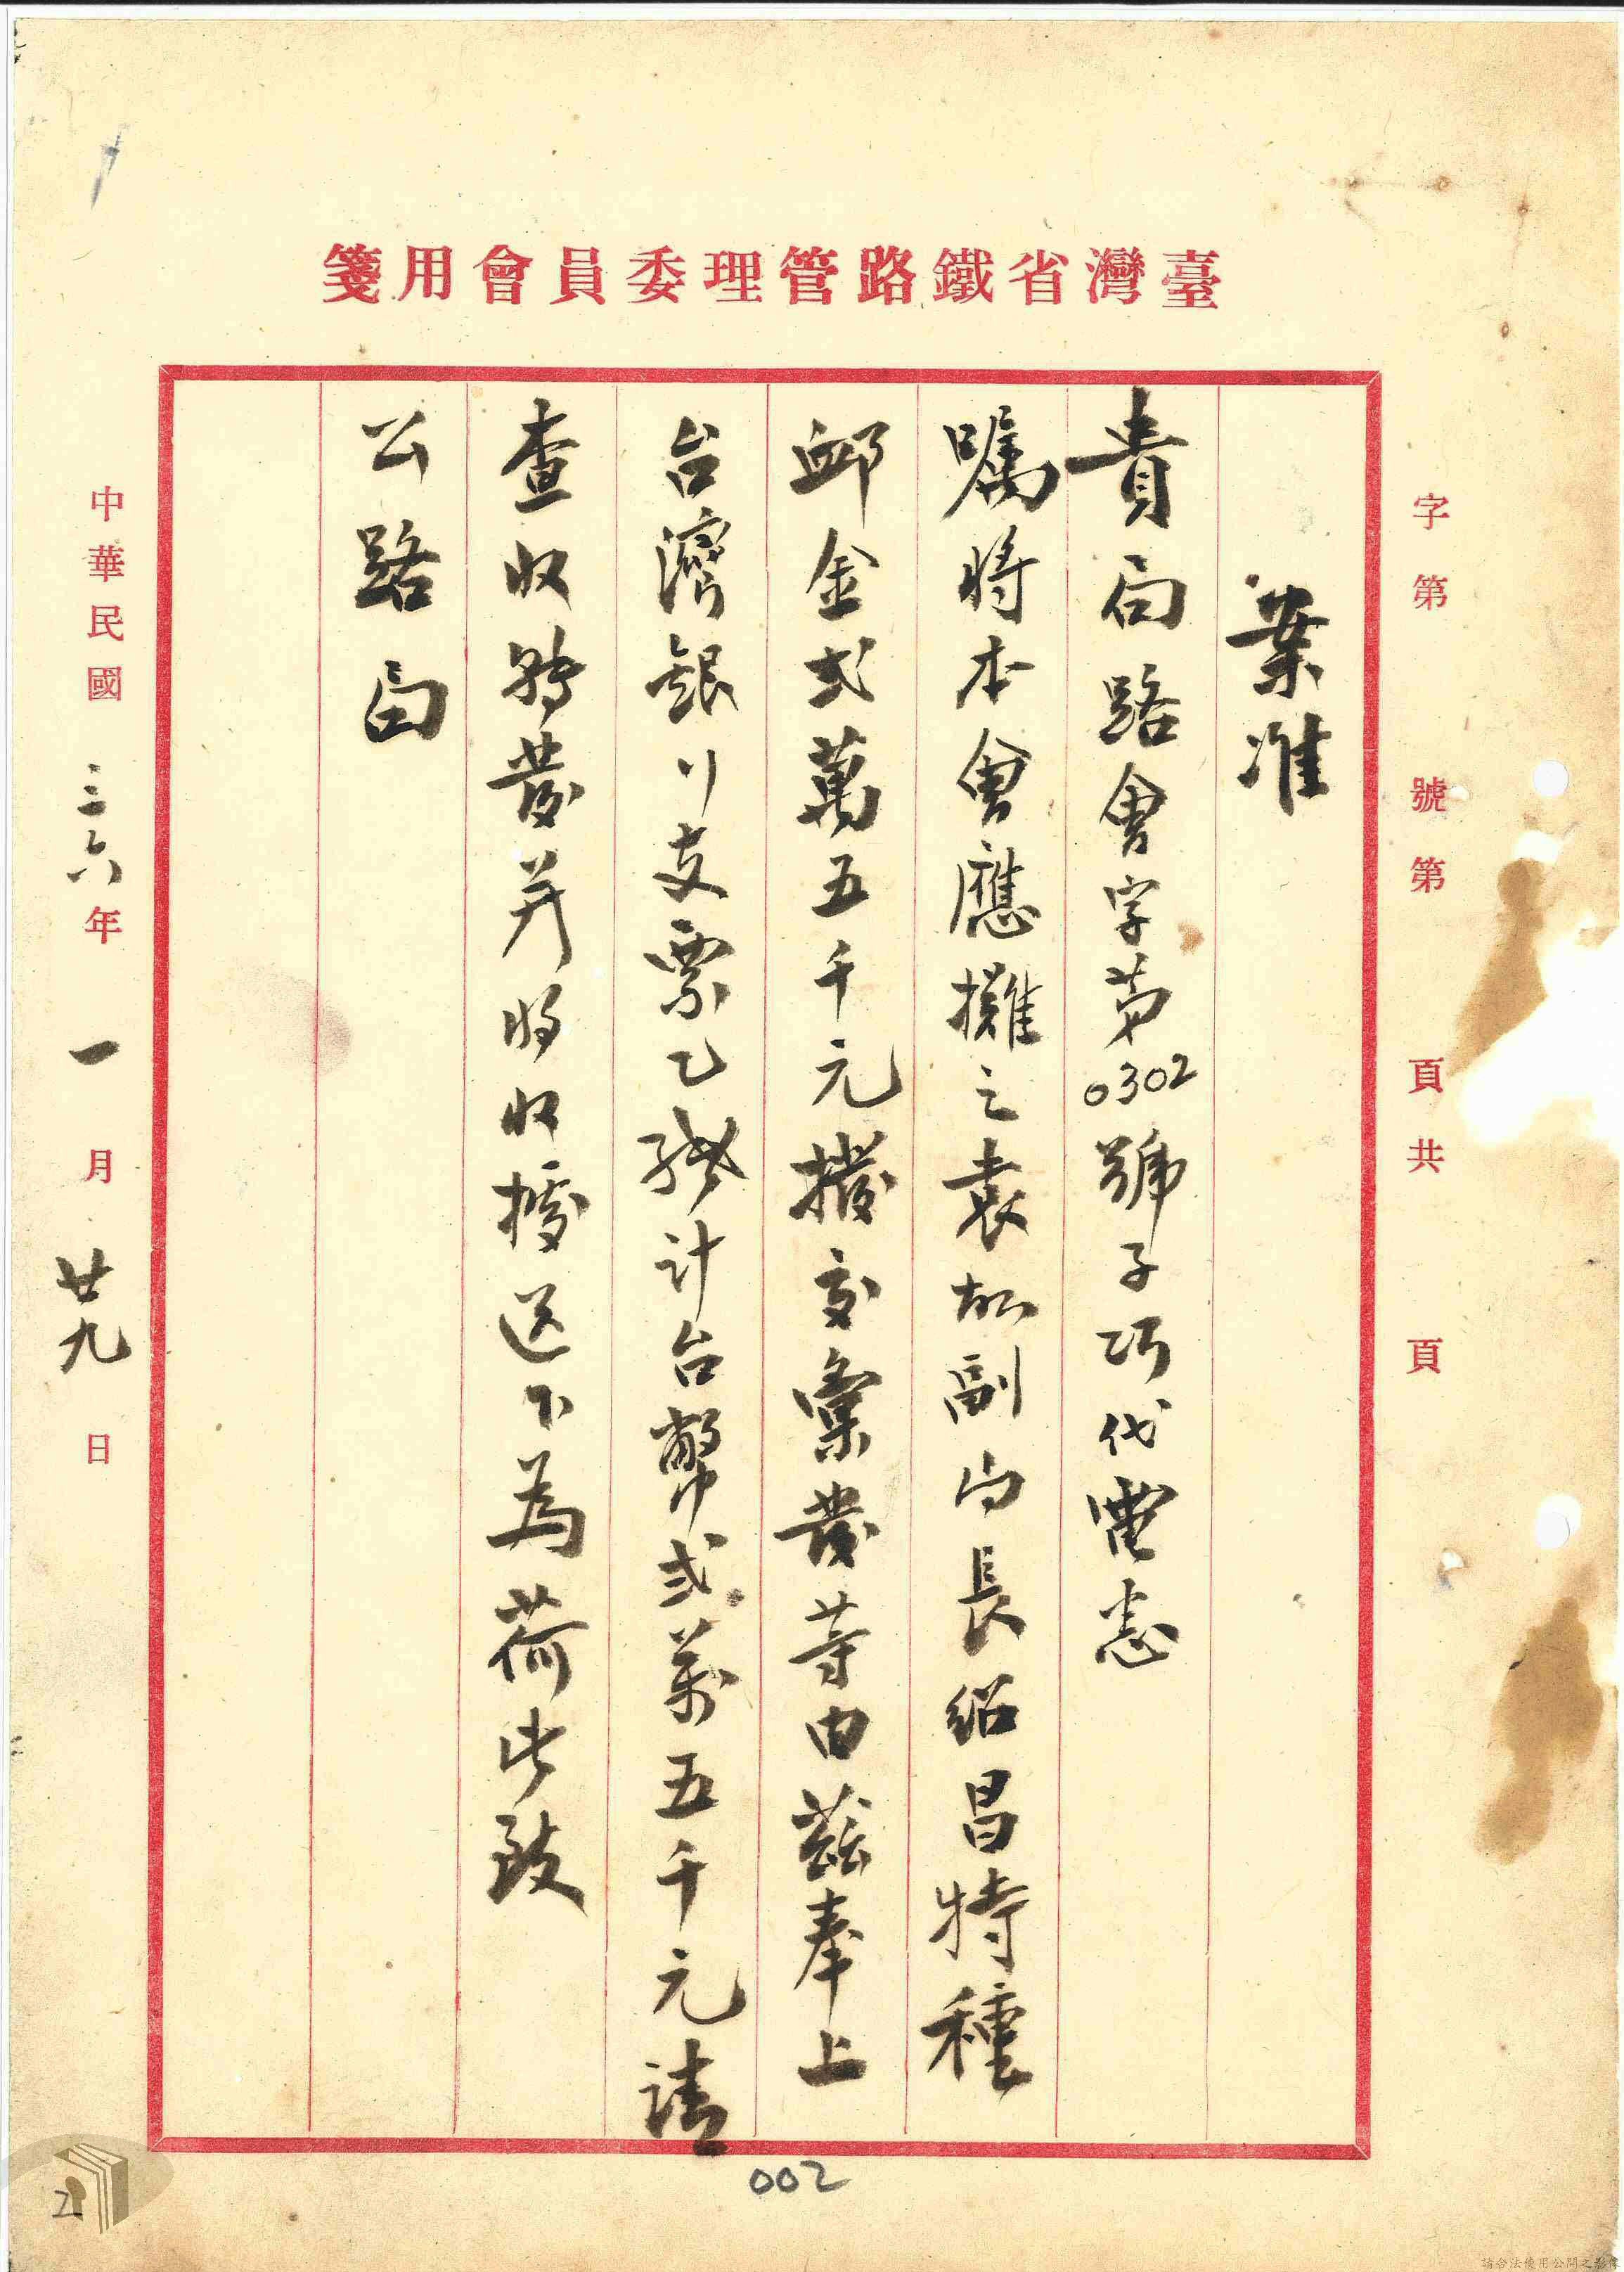 臺灣省鐵路管理委員會用箋
字第 號第 頁共 頁
案准
貴局路會字第0302號子巧代電悉
囑將本會應攤之袁故副局長紹昌特種
卹金貳萬五千元撥交彙發等由茲奉上
台灣銀行支票乙紙計台幣貳萬五千元請
查收轉發并將收據送下為荷此致
公路局
中華民國三六年一月廿九日
002
2
請合法使用公開之影像